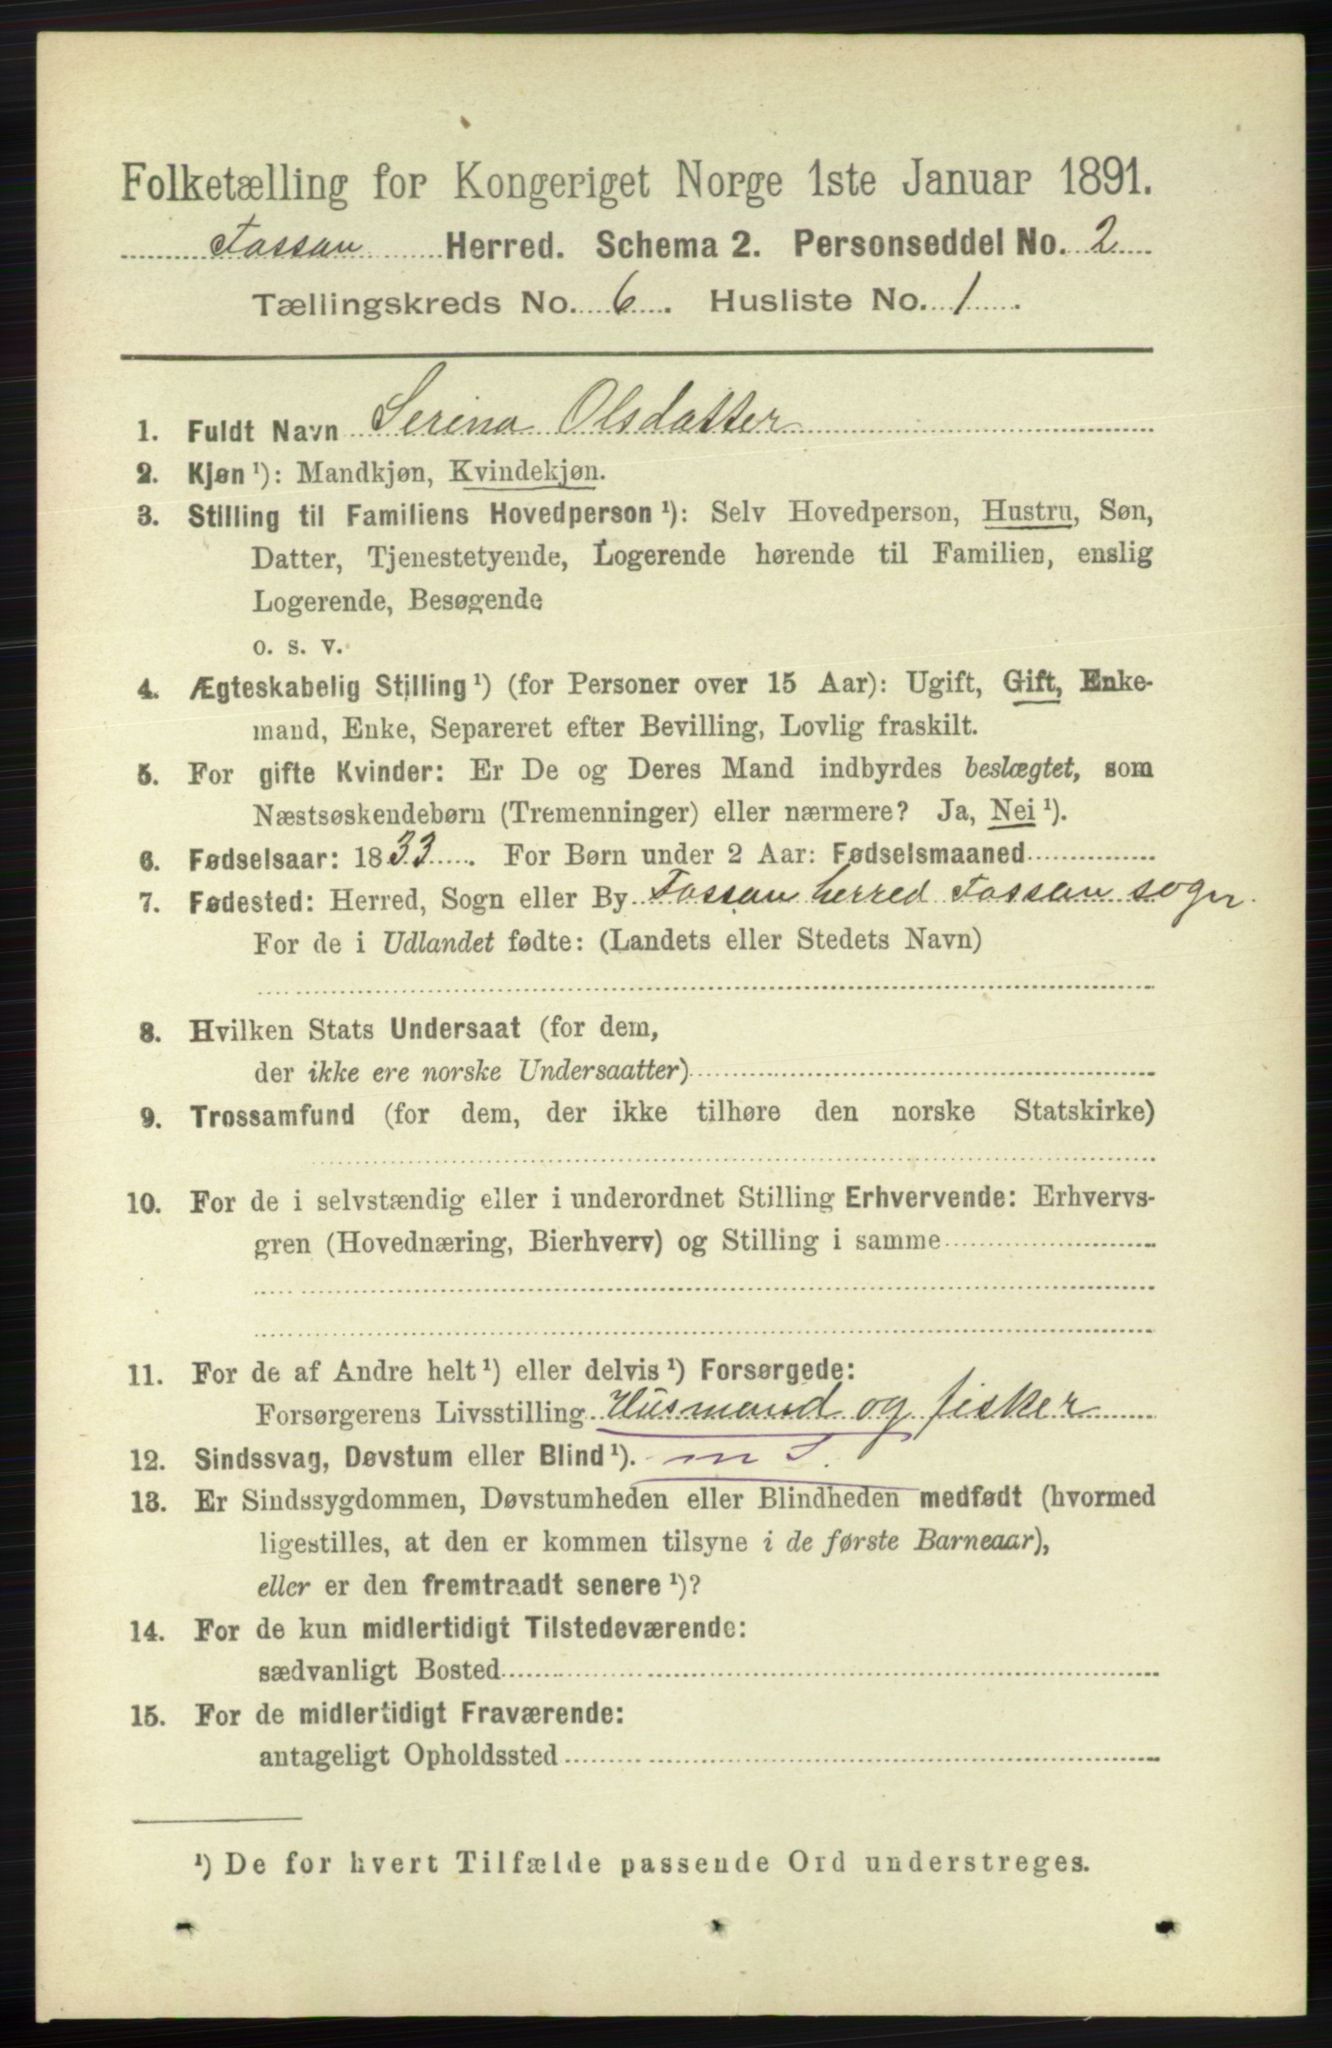 Folketælling for Kongeriget Norge 1ste Januar 1891.
Fossan Herred. Schema 2. Personseddel No. 2
Tællingskreds No. 6. Husliste No. 1.
1. Fuldt Navn Serina Olsdatter
2. Kjøn ¹): Mandkjøn, Kvindekjøn.
3. Stilling til Familiens Hovedperson ¹): Selv Hovedperson, Hustru, Søn,
Datter, Tjenestetyende, Logerende hørende til Familien, enslig
Logerende, Besøgende
o. s. v.
4. Ægteskabelig Stilling ¹) (for Personer over 15 Aar): Ugift, Gift, Enke-
mand, Enke, Separeret efter Bevilling, Lovlig fraskilt.
5. For gifte Kvinder: Er De og Deres Mand indbyrdes beslægtet, som
Næstsøskendebørn (Tremenninger) eller nærmere? Ja, Nei ¹).
6. Fødselsaar: 1833. For Børn under 2 Aar: Fødselsmaaned
7. Fødested: Herred, Sogn eller By Fossan herred Fossan sogn.
For de i Udlandet fødte: (Landets eller Stedets Navn)
8. Hvilken Stats Undersaat (for dem,
der ikke ere norske Undersaatter)
9. Trossamfund (for dem, der ikke tilhøre den norske Statskirke)
10. For de i selvstændig eller i underordnet Stilling Erhvervende: Erhvervs-
gren (Hovednæring, Bierhverv) og Stilling i samme
11. For de af Andre helt ¹) eller delvis ¹) Forsørgede:
Forsørgerens Livsstilling Husmand og fisker
12. Sindssvag, Døvstum eller Blind ¹). m S.
13. Er Sindssygdommen, Døvstumheden eller Blindheden medfødt (hvormed
ligestilles, at den er kommen tilsyne i de første Barneaar),
eller er den fremtraadt senere ¹)?
14. For de kun midlertidigt Tilstedeværende:
sædvanligt Bosted
15. For de midlertidigt Fraværende:
antageligt Opholdssted
¹) De for hvert Tilfælde passende Ord understreges.